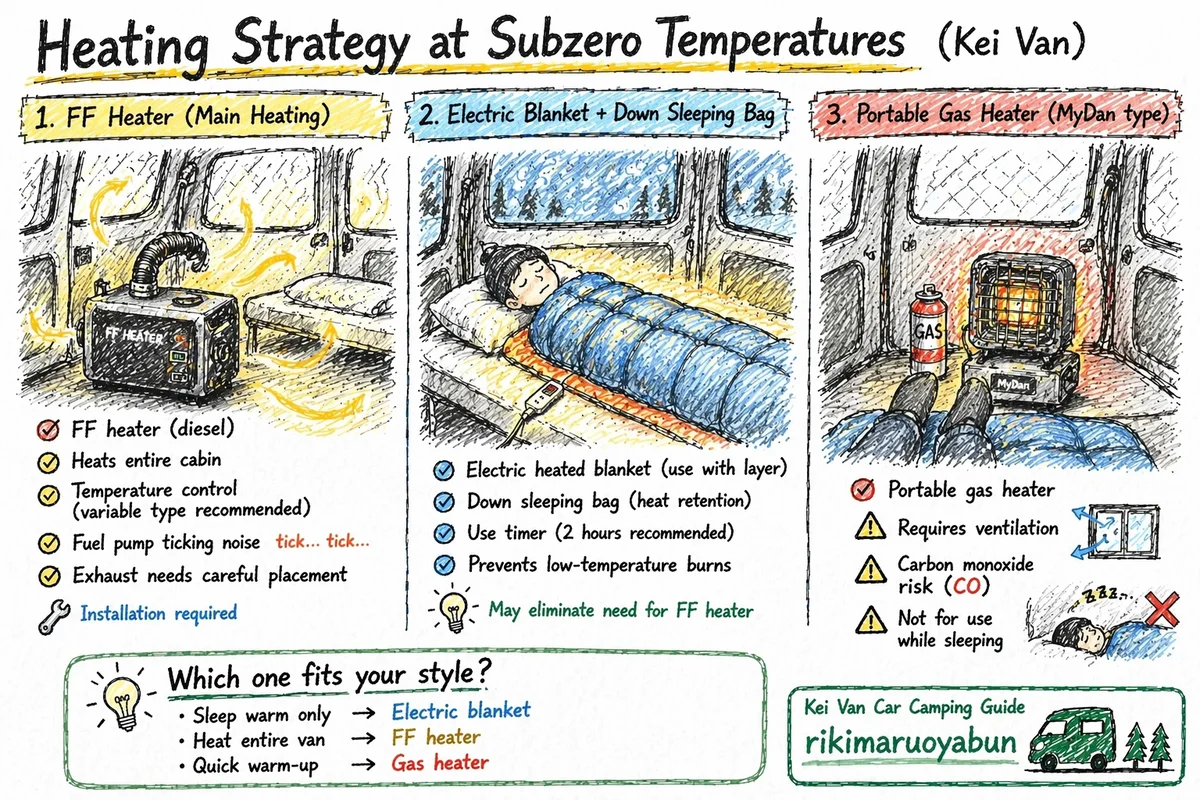 Heating Strategy at Subzero Temperatures (Kei Van)
1. FF Heater (Main Heating)
FF HEATER
FF heater (diesel)
Heats entire cabin
Temperature control
(variable type recommended)
Fuel pump ticking noise tick... tick...
Exhaust needs careful placement
Installation required
2. Electric Blanket + Down Sleeping Bag
Electric heated blanket (use with layer)
Down sleeping bag (heat retention)
Use timer (2 hours recommended)
Prevents low-temperature burns
May eliminate need for FF heater
3. Portable Gas Heater (MyDan type)
GAS
MyDan
Portable gas heater
Requires ventilation
Carbon monoxide
risk (CO)
Not for use
while sleeping
zzz...
Which one fits your style?
• Sleep warm only → Electric blanket
• Heat entire van → FF heater
• Quick warm-up → Gas heater
Kei Van Car Camping Guide
rikimaruoyabun